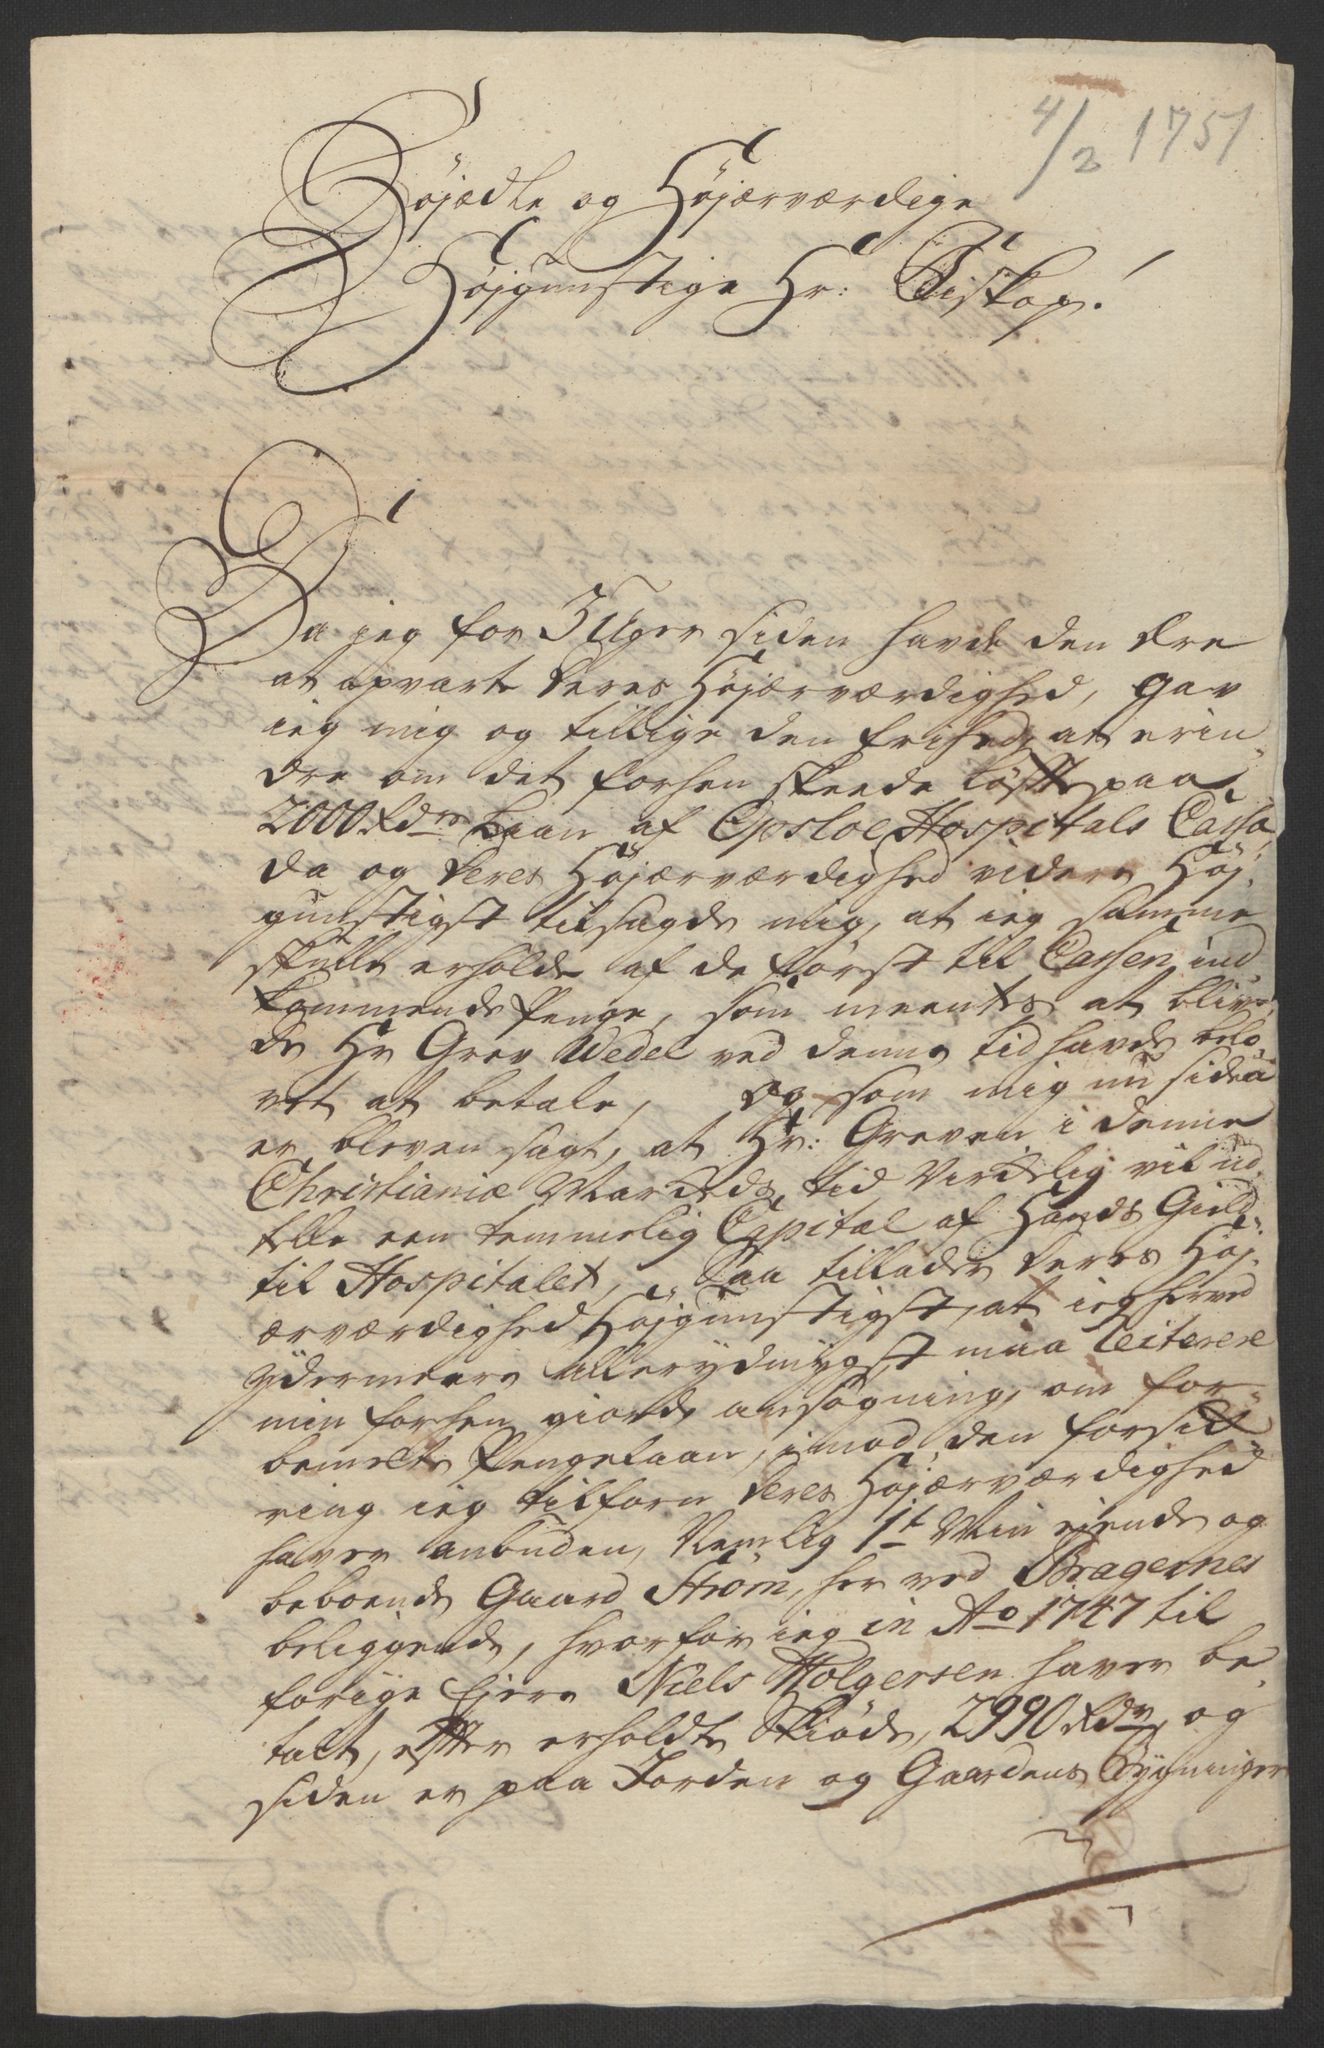 4/2 1751
Höjædle og Höjærværdige
Höjgunstige Hr: Biskop!
Da jeg for 3 Uger siden havde den Ære
at opvarte Deres Höjærværdighed, gav
ieg mig og tillige den frihed, at erin,
dre om det forhen skeede löfte paa
2000 Rdrs Laan af Opsloe Hospitals Cassa,
da og Deres Höjærværdighed videre Höj,
gunstigst tilsagde mig, at ieg samme
skulle erholde af de först til Cassen ind,
kommende Penge, som meentes at blive
de Hr Grev Wedel ved denne tid havde belo,
vet at betale, og som mig nu siden
er bleven sagt, at Hr: Greven i denne
Christianiæ Markeds tid Virkelig vil ud,
telle een temmelig Capital af Hands Gield
til Hospitalet, Saa tillader Deres Höj,
ærværdighed Höjgunstigst, at ieg herved
ydermeere allerydmygst maa reiterere
min forhen giorde ansögning, om for,
bemelte Pengelaan, imod den forsik
ring ieg tilforn Deres Höjærværdighed
haver anbuden, Nemlig 1t Min eiende og
beboende Gaard Ström, her ved Bragernes
beliggende, hvorfor ieg in Ao 1747 til
forige Ejere Niels Holgersen haver be,
talt, efter erholdte Skiöde, 2990 Rdr, og
siden er paa Jorden og Gaardens Bygninger